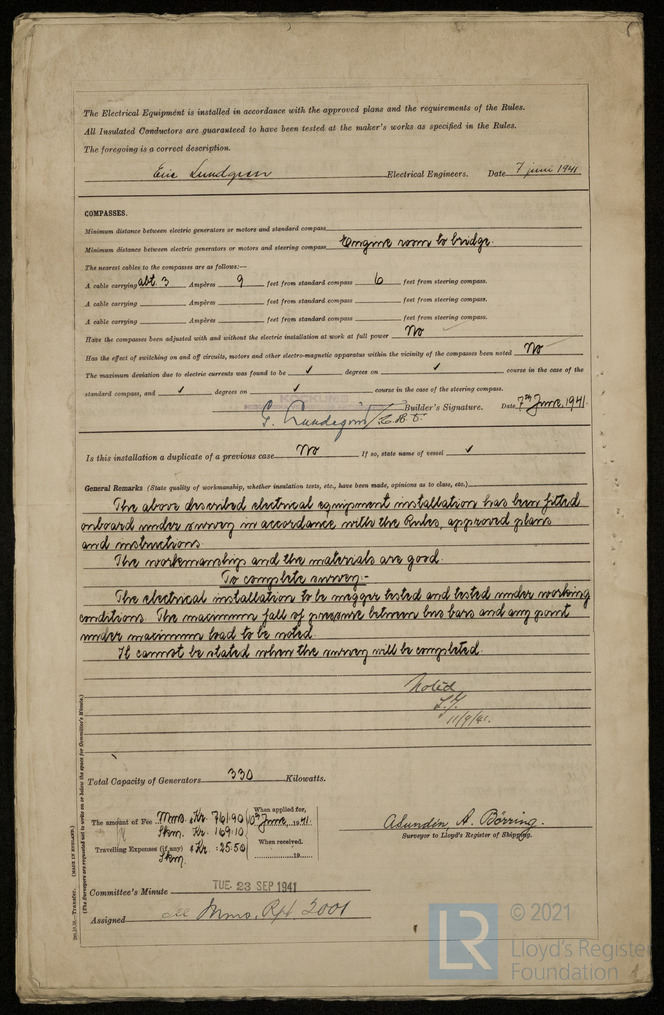 The Electrical Equipment is installed in accordance with the approved plans and the requirements of the Rules.
All Insulated Conductors are guaranteed to have been tested at the maker's works as specified in the Rules.
The foregoing is a correct description.
Eric Lundgren Electrical Engineers. Date 7 juni 1941
COMPASSES.
Minimum distance between electric generators or motors and standard compass
Minimum distance between electric generators or motors and steering compass Engine room to bridge.
The nearest cables to the compasses are as follows:—
A cable carrying abt. 3 Ampères 9 feet from standard compass 6 feet from steering compass.
A cable carrying Ampères feet from standard compass feet from steering compass.
A cable carrying Ampères feet from standard compass feet from steering compass.
Have the compasses been adjusted with and without the electric installation at work at full power No
Has the effect of switching on and off circuits, motors and other electro-magnetic apparatus within the vicinity of the compasses been noted No
The maximum deviation due to electric currents was found to be ✓ degrees on ✓ course in the case of the
standard compass, and ✓ degrees on ✓ course in the case of the steering compass.
KOCKUMS
Builder's Signature. Date 7th June, 1941.
Is this installation a duplicate of a previous case No If so, state name of vessel ✓
General Remarks (State quality of workmanship, whether insulation tests, etc., have been made, opinions as to class, etc.)
The above described electrical equipment installation has been fitted
onboard under survey in accordance with the Rules, approved plans
and instructions.
The workmanship and the materials are good.
To complete survey:-
The electrical installation to be megger tested and tested under working
conditions. The maximum fall of pressure between bus bars and any point
under maximum load to be noted.
It cannot be stated when the survey will be completed.
Noted
11/9/41.
Total Capacity of Generators 330 Kilowatts.
The amount of Fee Mms. Kr. 761.90
Skm. Kr. 169.10
When applied for,
10th June, 1941.
Travelling Expenses (if any) Kr. 25:50
Skm.
When received.
19
A. Börring.
Surveyor to Lloyd's Register of Shipping.
Committee's Minute TUE. 23 SEP 1941
Assigned See Mms. Rpt. 2001
(MADE IN ENGLAND.)
(The Surveyors are requested not to write on or below the space for Committee's Minute.)
LR
© 2021
Lloyd's Register
Foundation